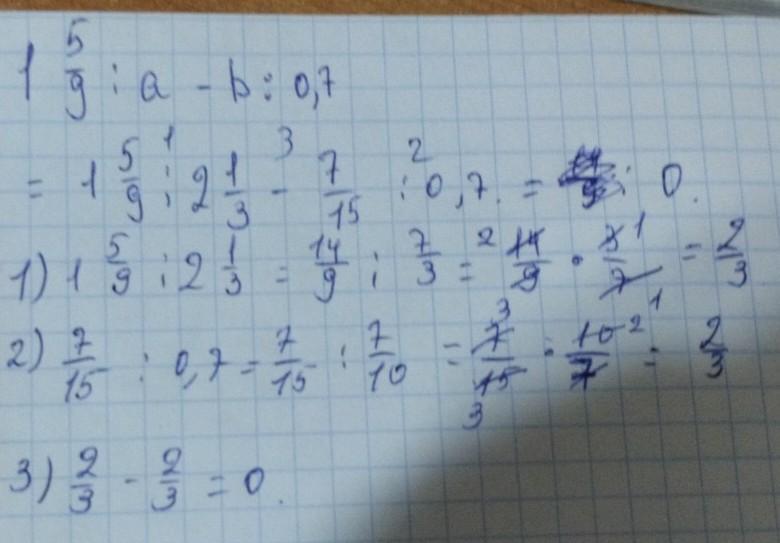 1 5/9 : a - b : 0,7
= 1 5/9 : 2 1/3 - 7/15 : 0,7. = 0.
1) 1 5/9 : 2 1/3 = 14/9 : 7/3 = 14/9 · 3/7 = 2/3
2) 7/15 : 0,7 = 7/15 : 7/10 = 7/15 · 10/7 = 2/3
3) 2/3 - 2/3 = 0.